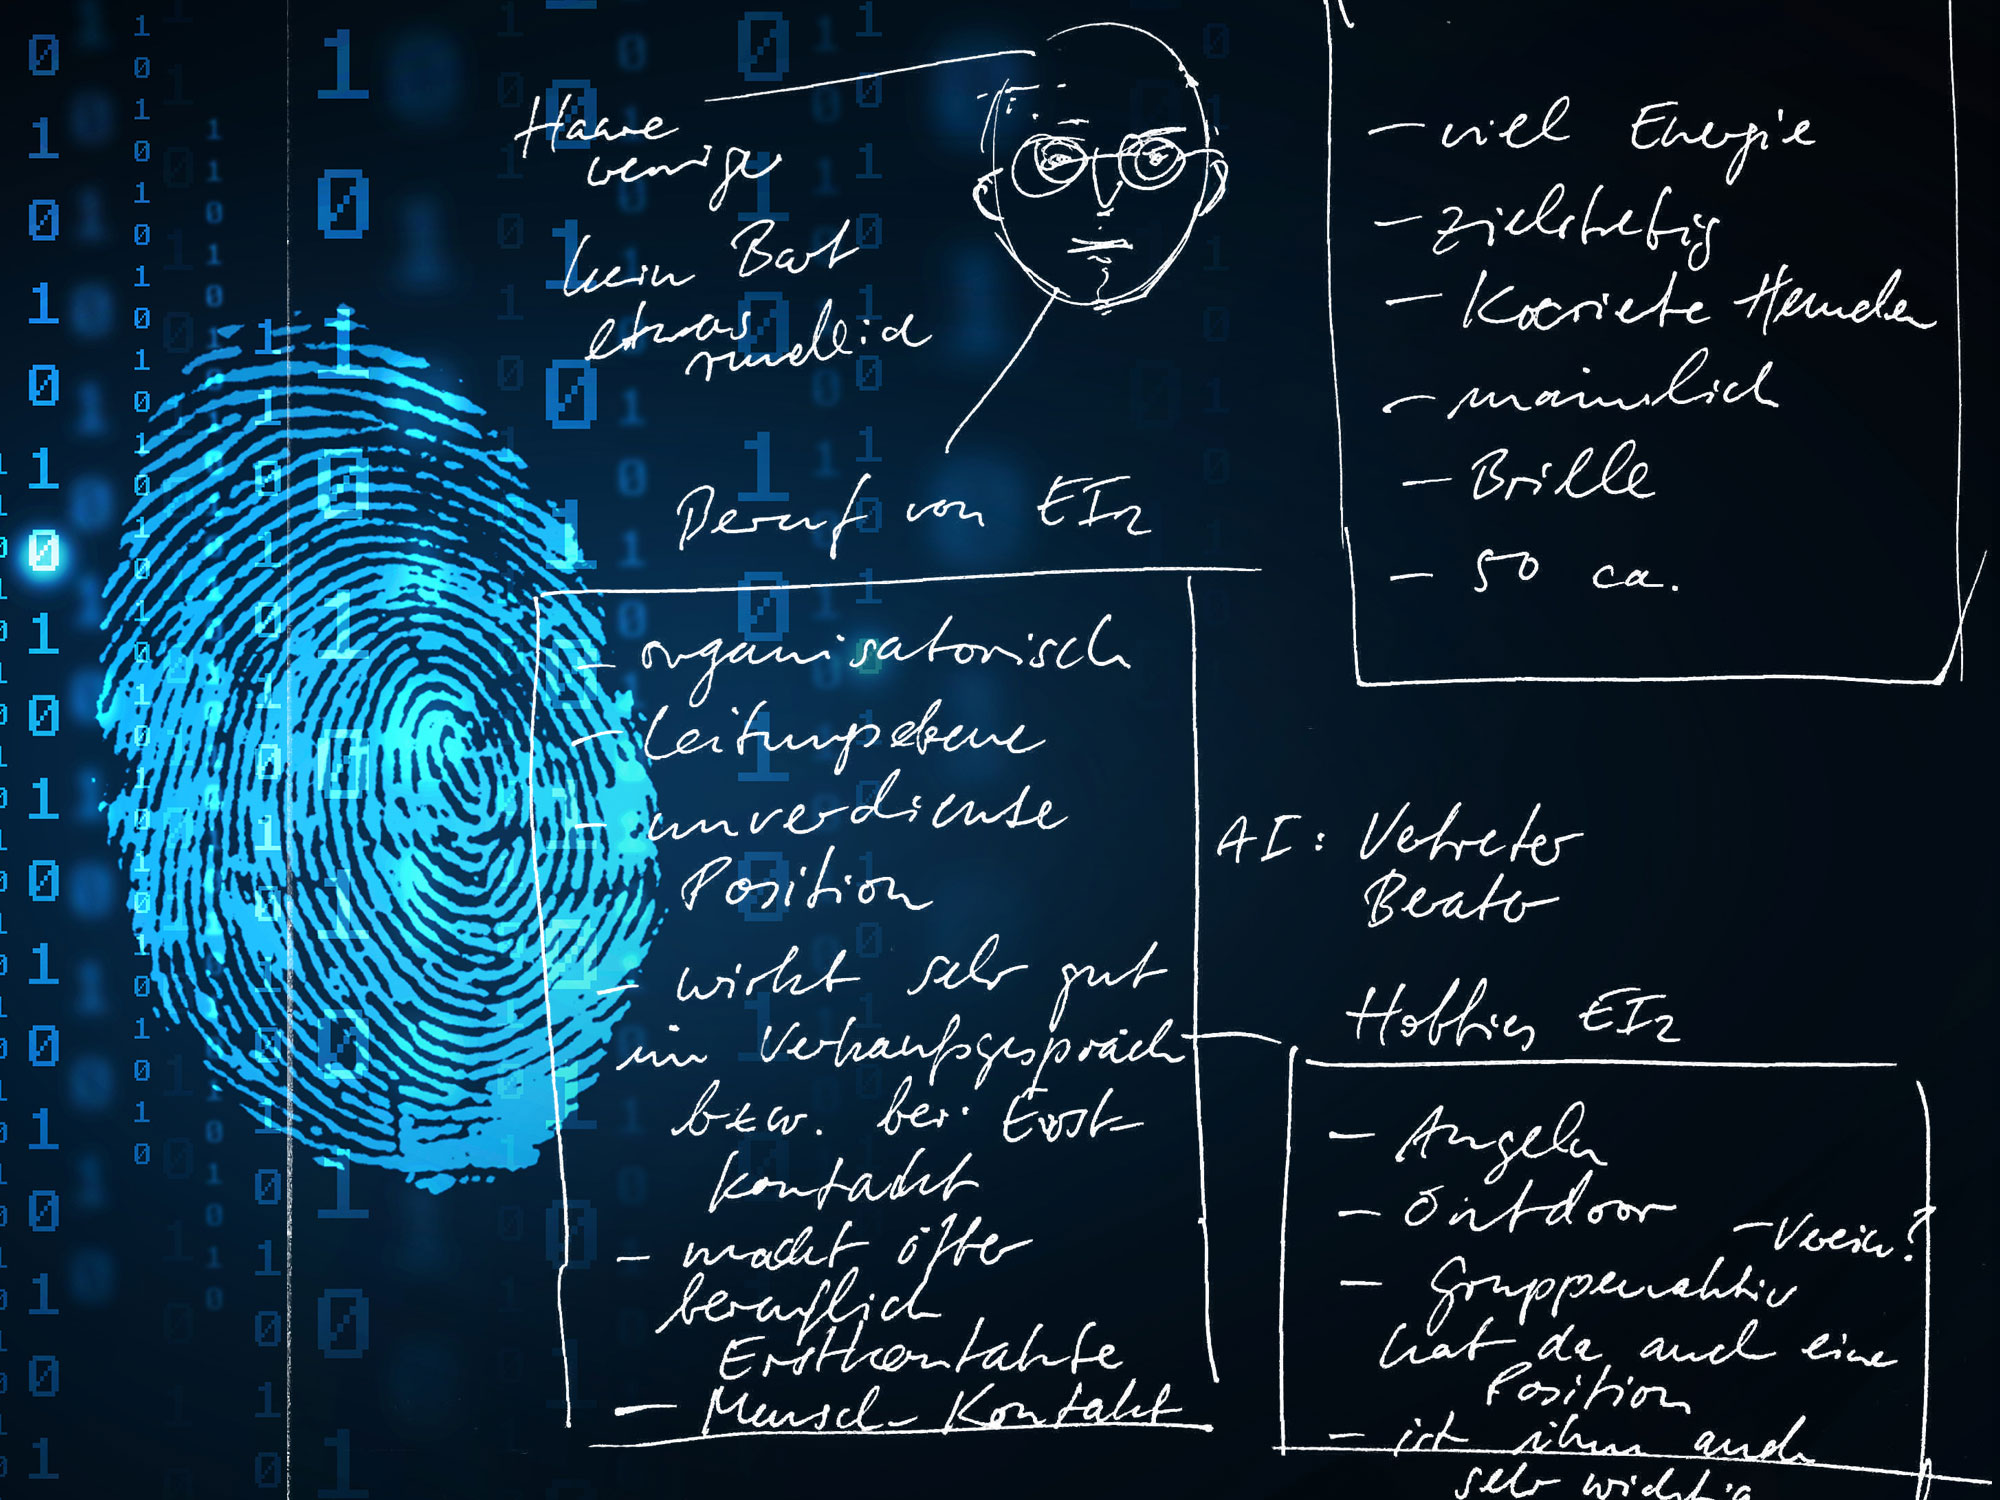 Haare
wenige
kein Bart
etwas
rundlich
Beruf von EI2
- organisatorisch
- Leitungsebene
- unverdiente
Position
- wirkt sehr gut
im Verkaufsgespräch
bzw. bei Erst-
kontakt
- macht öfter
beruflich
Erstkontakte
- Mensch-Kontakt
- viel Energie
- zielstrebig
- Karierte Hemden
- männlich
- Brille
- 50 ca.
AI: Vertreter
Berater
Hobbies EI2
- Angeln
- Outdoor
- Verein?
- Gruppenaktiv
hat da auch eine
Position
- ist ihm auch
sehr wichtig